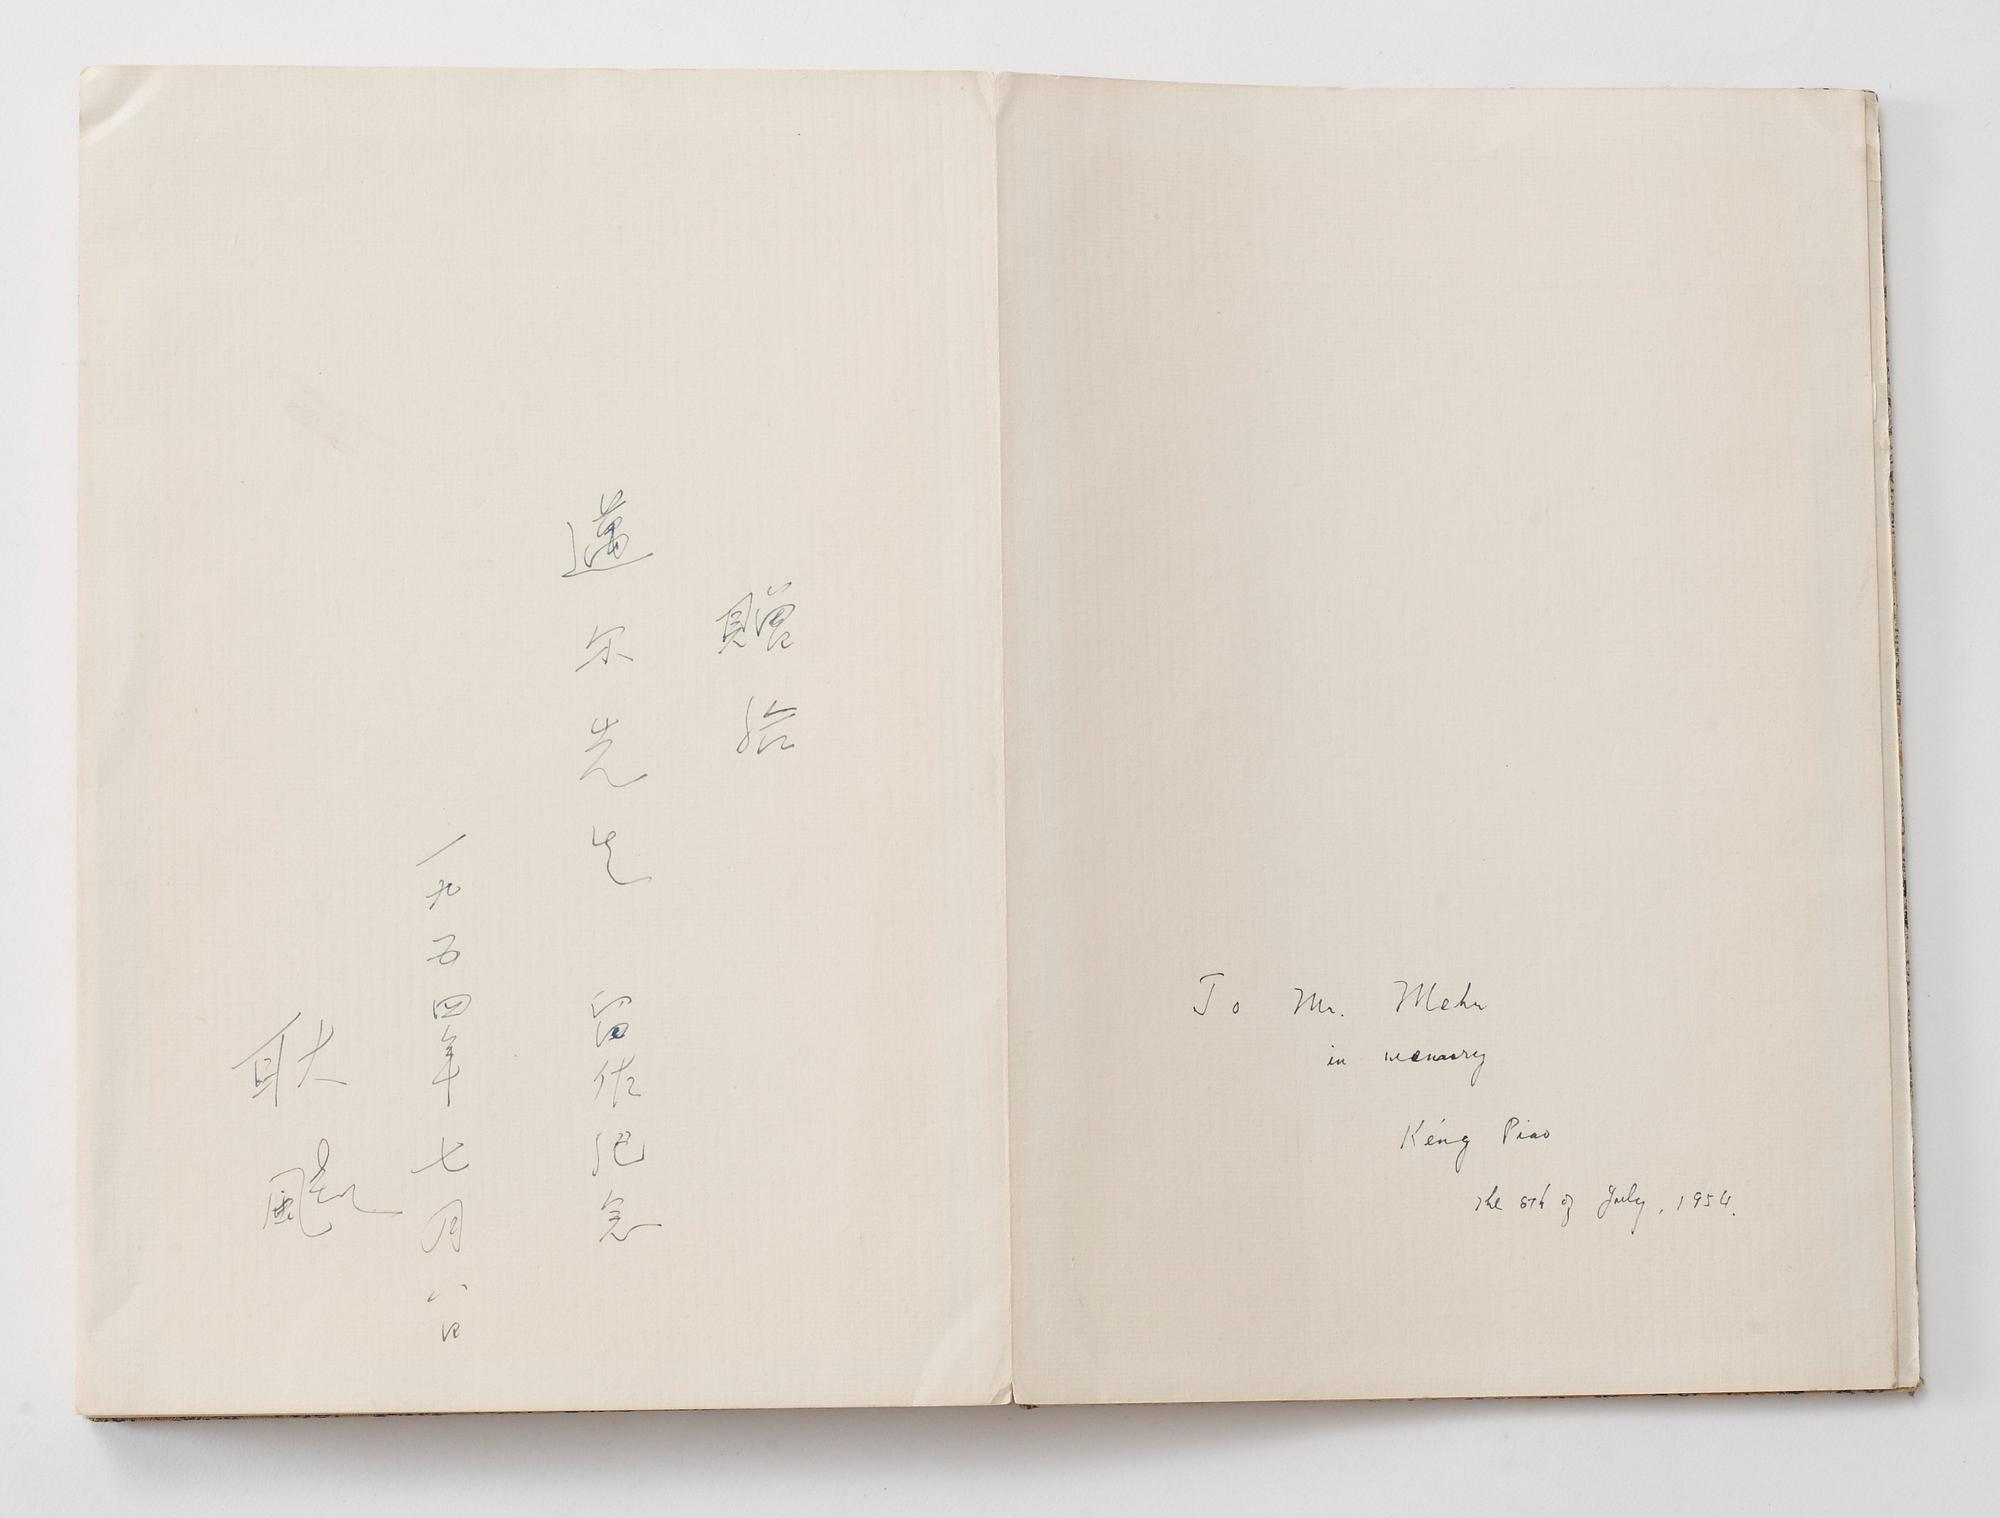 贈给
邁尔先生 留作纪念
一九五四年七月八日
耿飈
To Mr. Mehr
in memory
Kéng Piao
the 8th of July, 1954.